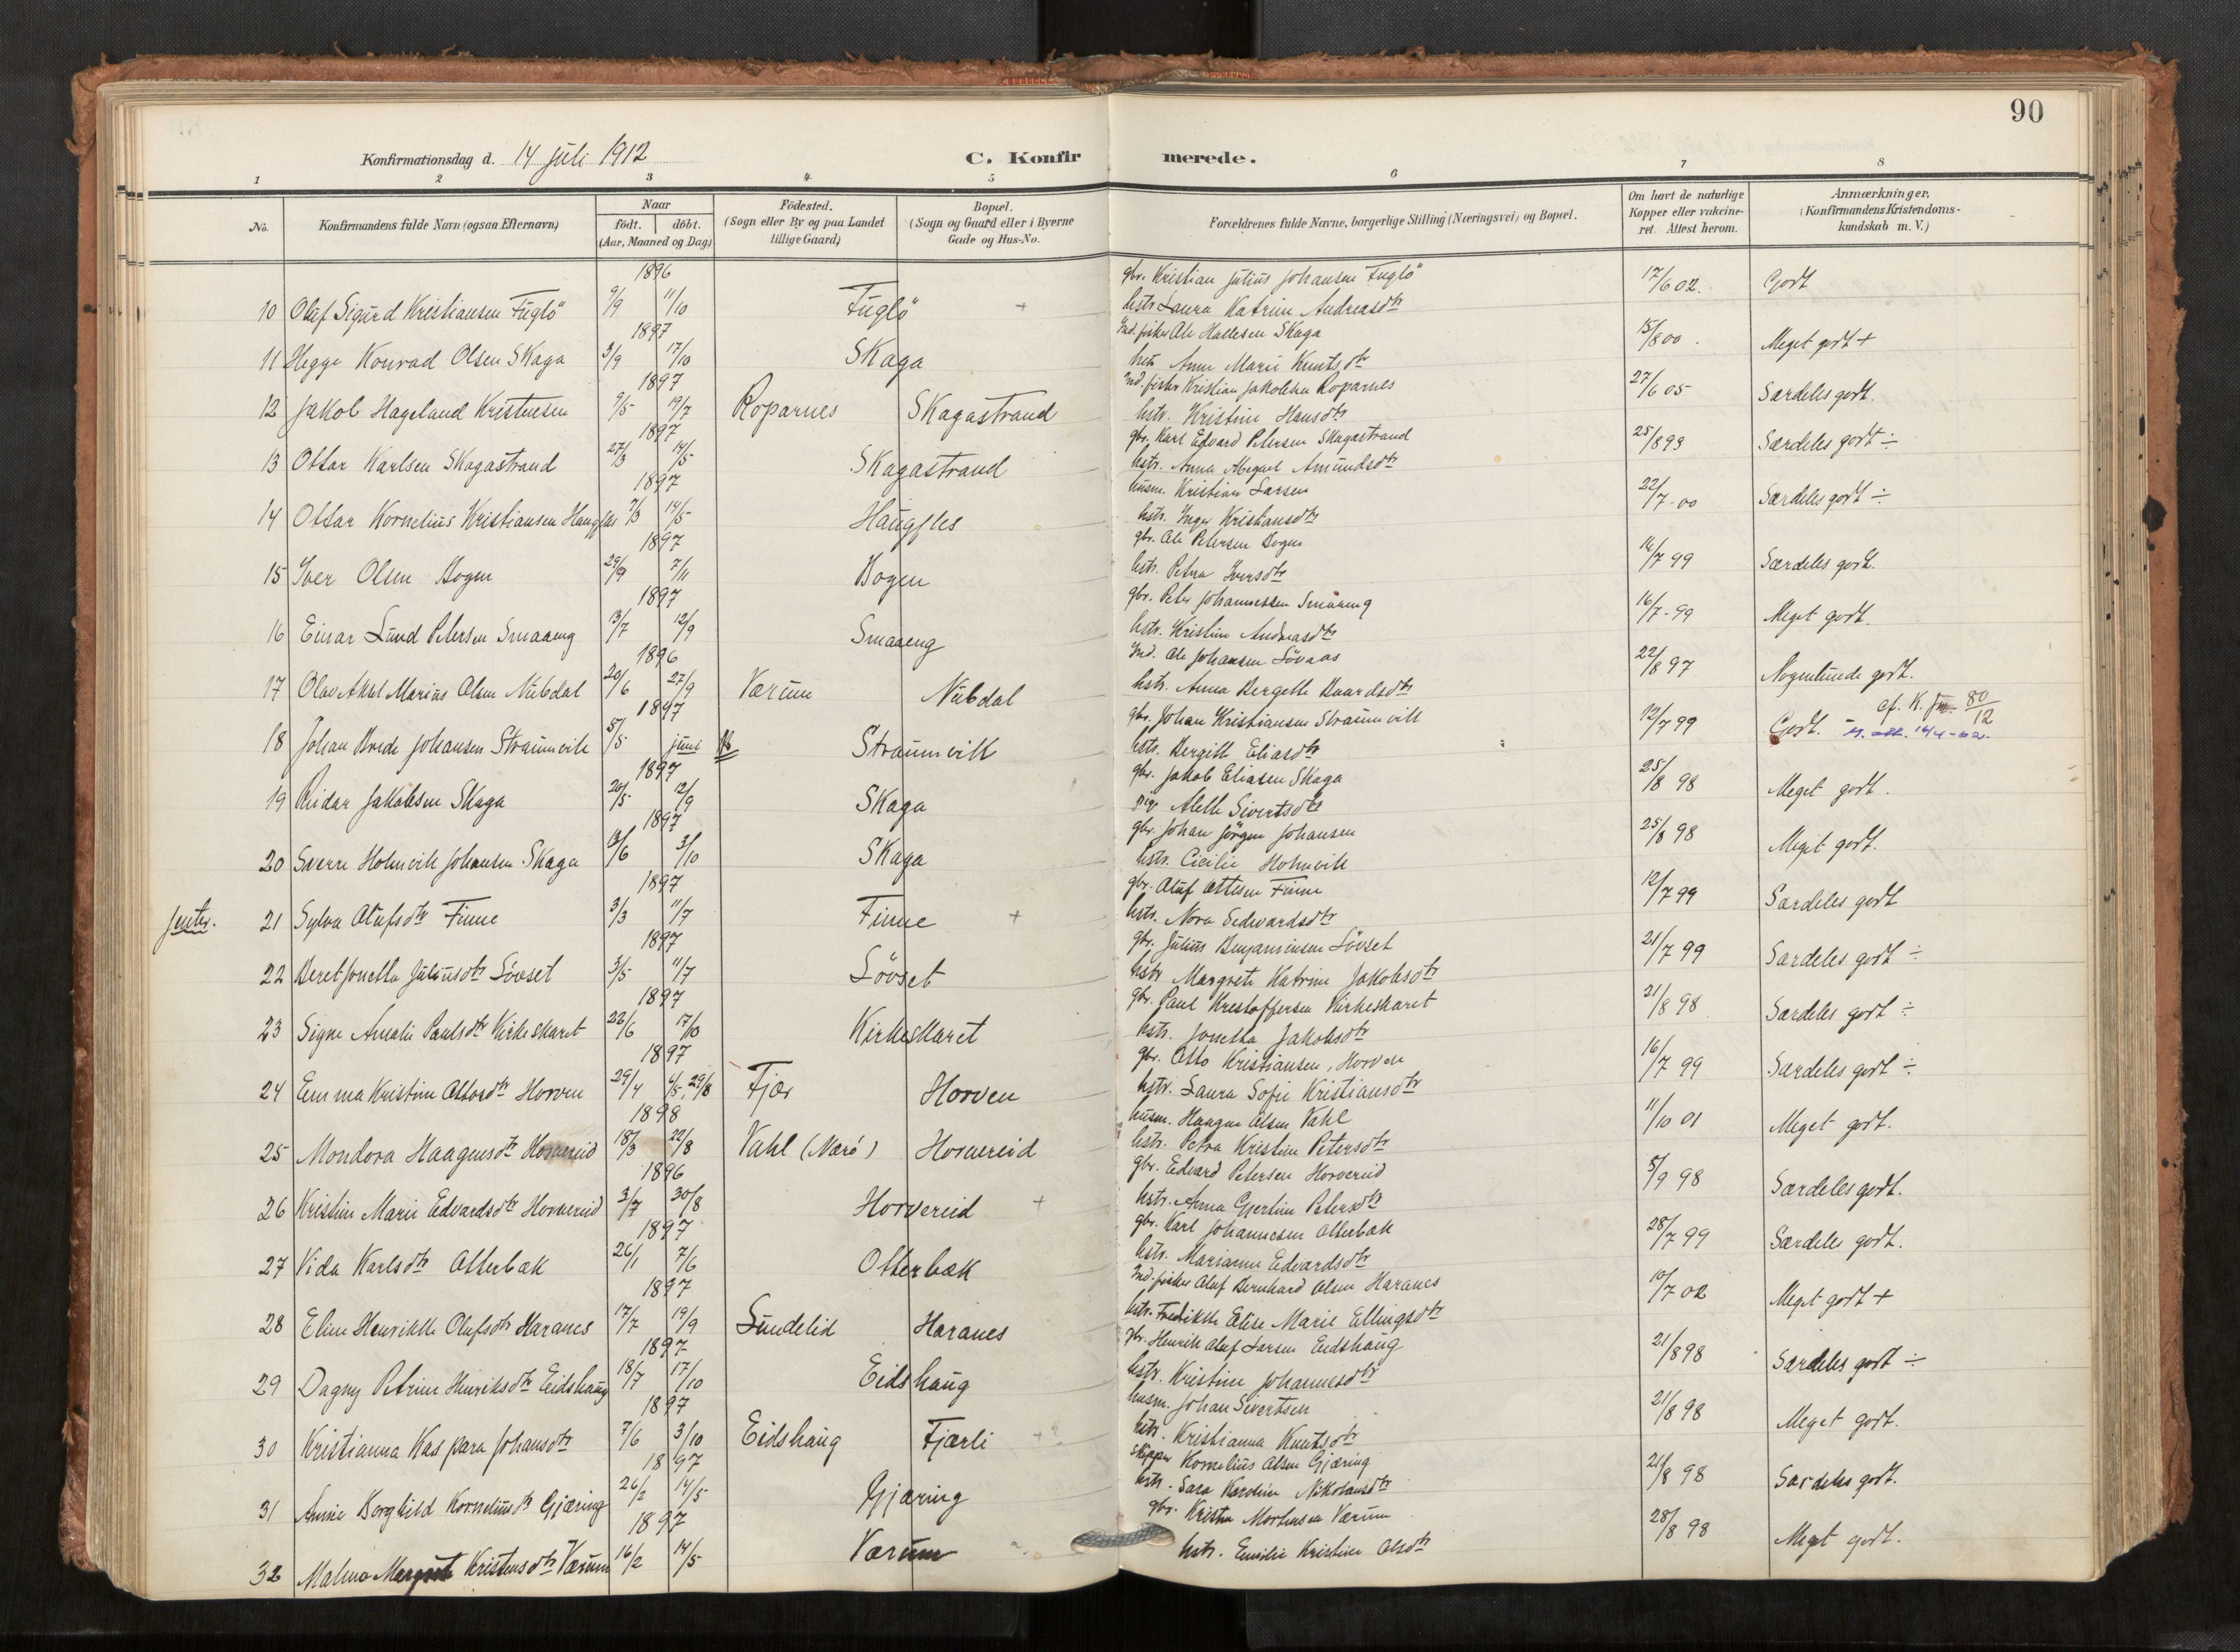 90
Konfirmationsdag d. 14 juli 1912
C. Konfirmerede.
1 2 3 4 5 6 7 8
No. Konfirmandens fulde Navn (ogsaa Efternavn) Naar födt. döbt. (Aar, Maaned og Dag) Födested. (Sogn eller By og paa Landet tillige Gaard) Bopæl. (Sogn og Gaard eller i Byerne Gade og Hus-No. Forældrenes fulde Navne, borgerlige Stilling (Næringsvei) og Bopæl. Om havt de naturlige Kopper eller vakcineret. Attest herom. Anmærkninger, (Konfirmandens Kristendomskundskab m. V.)
1896 gbr. Kristian Julius Johansen Fuglö 17/6 02. Godt
10 Oluf Sigurd Kristiansen Fuglö 9/9 11/10 Fuglö + hstr Laura Katrine Andreasdtr
1897 Ind. fisker Ole Hallesen Skaga 15/8 00. Meget godt +
11 Hegge Konrad Olsen Skaga 3/9 17/10 Skaga Anne Marie Knutsdtr
1897 Ind. fisker Kristian Jakobsen Roparnes 27/6 05 Særdeles godt.
12 Jakob Hageland Kristensen 9/5 19/7 Roparnes Skagastrand hstr. Kristine Hansdtr
1897 gbr. Karl Edvard Petersen Skagastrand 25/8 93 Særdeles godt ÷
13 Ottar Karlsen Skagastrand 27/3 14/5 Skagastrand hstr. Anna Amundsdtr
1897 husm. Kristian Larsen 22/7 - 00 Særdeles godt ÷
14 Ottar Kornelius Kristiansen Haugfles 7/3 14/5 Haugfles hstr. Inger Kristiansdtr
1897 gbr. Ole Petersen Bogen 14/7 99 Særdeles godt.
15 Iver Olsen Bogen 29/9 7/11 Bogen hstr. Petra Iversdtr
1897 gbr. Peter Johannessen Smaaeng 16/7 - 99 Meget godt.
16 Einar Lund Petersen Smaaeng 13/7 12/9 Smaaeng hstr. Kristine Andreasdtr
1896 Ind. Ole Johansen Lövaas 22/8 97 Nogenlunde godt.
17 Olav Aksel Marius Olsen Nubdal 20/6 27/9 Værum Nubdal hstr. Anna Bergette Baardsdtr
1897 gbr. Johan Kristiansen Straumvik 12/7 99 Godt. cf. K. Jn. 80/12
18 Johan Brede Johansen Straumvik 5/5 juni 18 Straumvik hstr. Bergitte Eliasdtr
1897 gbr. Jakob Eliasen Skaga 25/8 98 Meget godt.
19 Reidar Jakobsen Skaga 26/5 12/9 Skaga Alette Sivertsdtr
1897 gbr. Johan Jörgen Johansen 25/8 98 Meget godt.
20 Sverre Holmvik Johansen Skaga 13/6 3/10 Skaga hstr. Cicilie Holmvik
1897 gbr. Oluf Ottesen Finne 12/7 99 Særdeles godt
jenter. 21 Sylva Olufsdtr Finne 3/3 11/7 Finne + hstr. Nora Sedevardsdtr
1897 gbr. Julius Benjaminsen Lövset 21/7 99 Særdeles godt ÷
22 Beret Jonetta Juliusdtr Lövset 3/5 11/7 Lövset hstr Margrete Katrine Jakobsdtr
1897 gbr. Paul Kristoffersen Kirkeskaret 21/8 98 Særdeles godt ÷
23 Signe Amalie Paulsdtr Kirkeskaret 22/6 17/10 Kirkeskaret hstr. Jonetta Jakobsdtr
1897 gbr. Otto Kristiansen, Horven 16/7 99 Særdeles godt ÷
24 Emma Kristine Ottosdtr Horven 29/4 4/5. 29/8 Fjær Horven hstr. Laura Sofie Kristiansdtr
1898 husm. Haagen Olsen Vahl 11/10 01 Meget godt.
25 Mondora Haagensdtr Horvereid 18/3 22/8 Vahl (Nærö) Horvereid hstr. Petra Kristine Petersdtr
1896 gbr. Edvard Petersen Horvereid 5/9 98 Særdeles godt.
26 Kristine Marie Edvardsdtr Horvereid 3/7 30/8 Horvereid + hstr. Anna Gjertine Petersdtr
1897 gbr. Karl Johannesen Otterbæk 28/7 99 Særdeles godt.
27 Vida Karlsdtr Otterbæk 26/1 7/6 Otterbæk hstr. Marianne Edvardsdtr
1897 Ind. fisker Oluf Bernhard Olsen Haranes 10/7 02 Meget godt +
28 Eline Henrikke Olufsdtr Haranes 17/7 19/9 Sundelid Haranes hstr. Fredrikke Elise Marie Ellingsdtr
1897 gbr. Henrik Oluf Larsen Eidshaug 21/8 98 Særdeles godt ÷
29 Dagny Petrine Henriksdtr Eidshaug 18/7 17/10 Eidshaug hstr. Kristine Johannesdtr
1897 husm. Johan Sivertsen 21/8 98 Meget godt.
30 Kristianna Kaspara Johansdtr 7/6 3/10 Eidshaug Fjærli +? hstr. Kristianna Knutsdtr
1897 skipper Kornelius Olsen Gjæring 21/8 98 Særdeles godt.
31 Anne Borghild Korneliusdtr Gjæring 26/2 14/5 Gjæring hstr. Sara Karoline Nikolaisdtr
1897 gbr. Kristen Mortensen Værum 28/8 98 Meget godt.
32 Malma Margrete Kristensdtr Værum 16/2 14/5 Værum hstr. Emilie Kristine Olsdtr